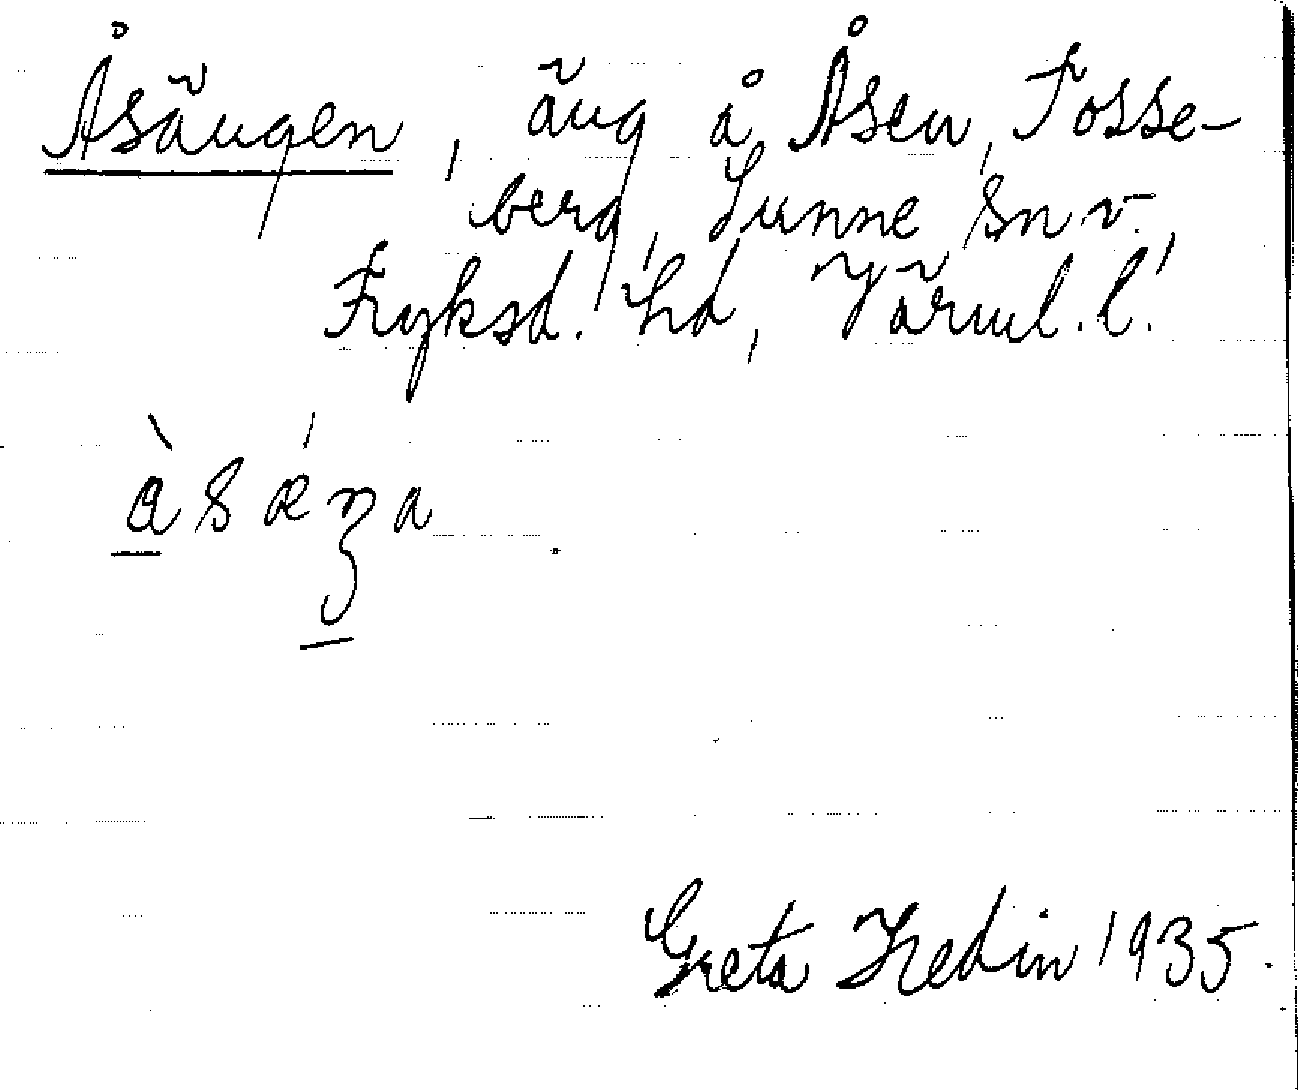 Åsängen, äng å Åsen, Fosse-
berg, Sunne sn v.
Fryksd. hd, Värml. l.
Greta Hedin 1935.